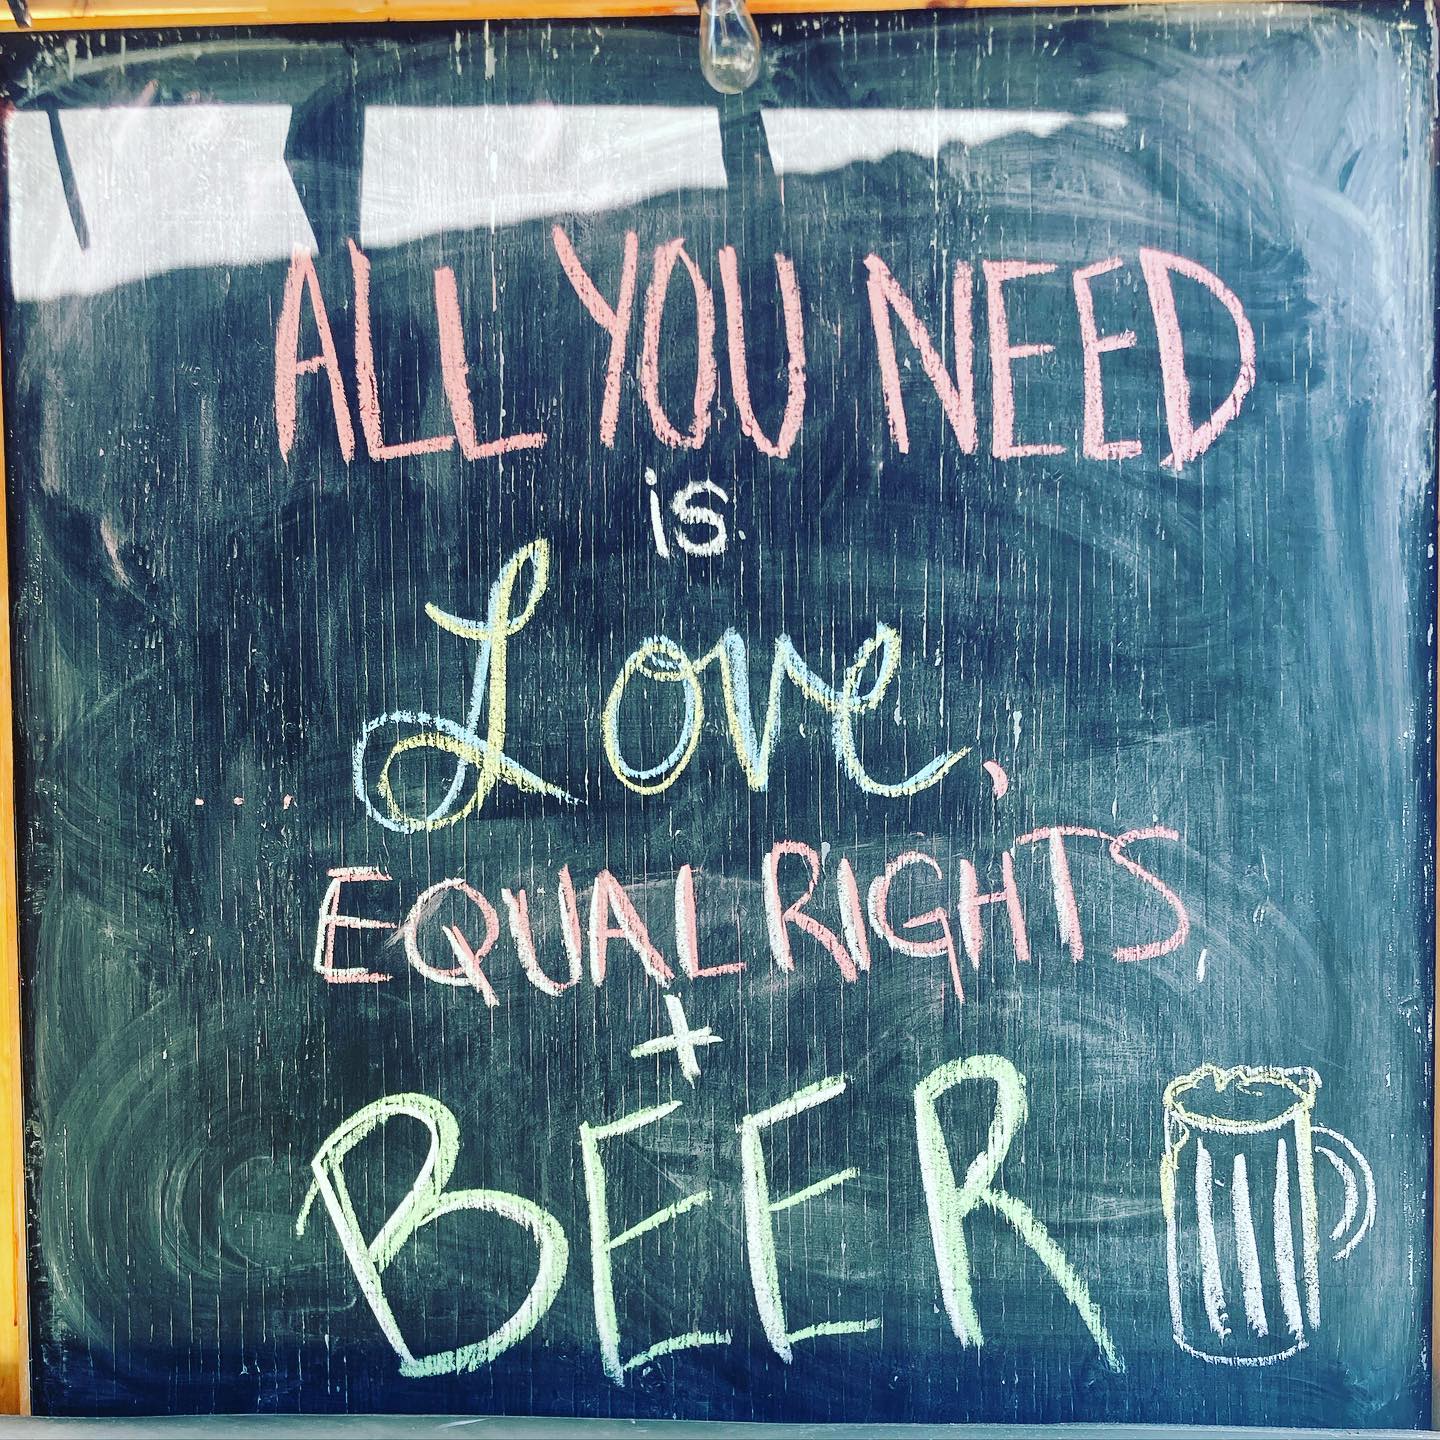 ALL YOU NEED
is
Love,
EQUAL RIGHTS,
+
BEER